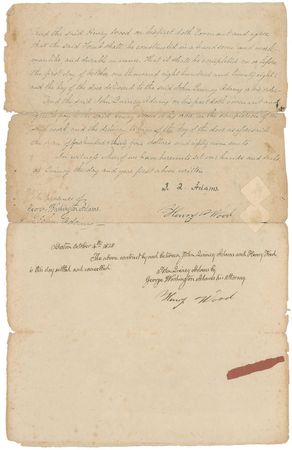 And the said Henry Wood on his part doth Covenant and agree
that the said Tomb shall be constructed in a handsome and work-
manlike and durable manner. That it shall be completed on or before
the first day of October one thousand eight hundred and twenty eight;
and the key of the door delivered to the said John Quincy Adams
And the said John Quincy Adams on his part doth covenant and
agree to pay to the said Henry Wood on the completion of
the work and the delivery of the key of the door as aforesaid
the sum of four hundred thirty four dollars and eighty cents
In witness whereof we have hereunto set our hands and seals
at Quincy the day and year first above written
J. Q. Adams.
In presence of
George Washington Adams
Adams
Henry Wood
Boston October 4th 1828
The above contract by and between John Quincy Adams and Henry Wood
is this day settled and cancelled
John Quincy Adams by
George Washington Adams his Attorney
Henry Wood